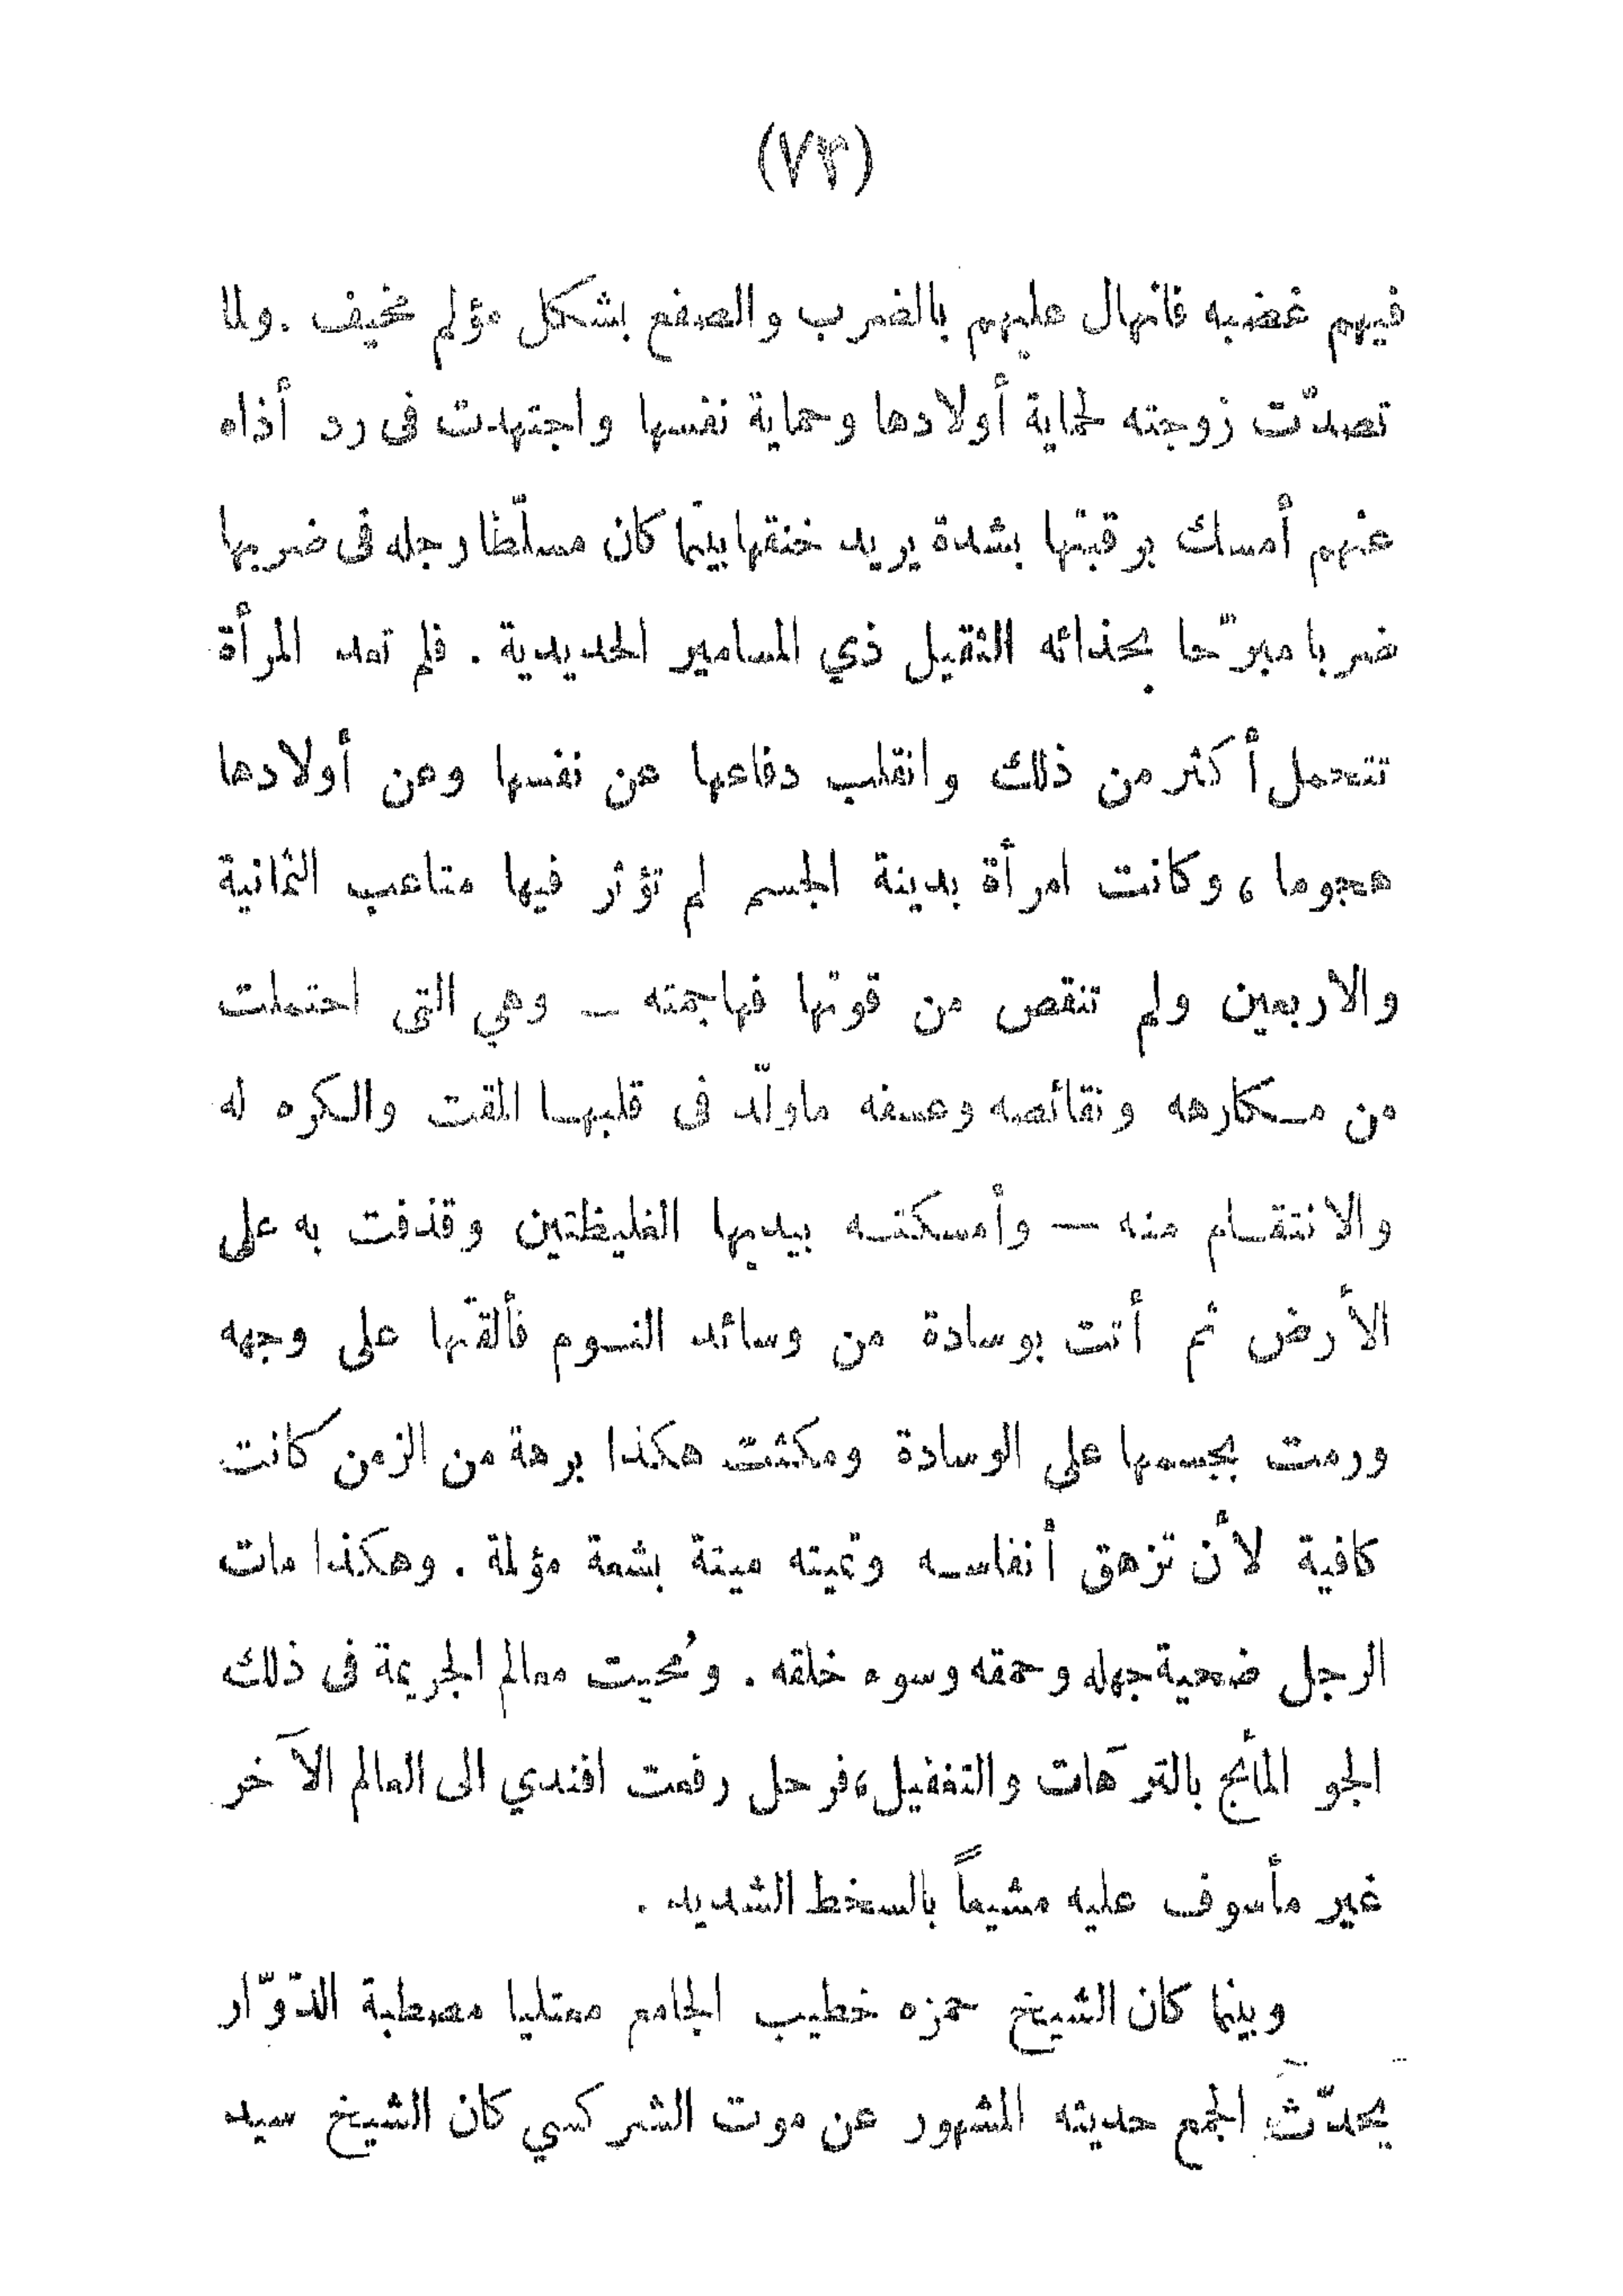 (٧٣)
فيهم غضبه فانهال عليهم بالضرب والصفع بشكل مؤلم مخيف . ولما
تصدّت زوجته لحماية أولادها وحماية نفسها واجتهدت فى رد أذاه
عنهم أمسك برقبتها بشدة يريد خنقها بينما كان مسلّطا رجله فى ضربها
ضربا مبرّحا بحذائه الثقيل ذي المسامير الحديدية . فلم تعد المرأة
تتحمل أكثر من ذلك وانقلب دفاعها عن نفسها وعن أولادها
هجوما ، وكانت امرأة بدينة الجسم لم تؤثر فيها متاعب الثمانية
والاربعين ولم تنقص من قوتها فهاجمته — وهي التى احتملت
من مكارهه ونقائصه وعسفه ماولّد فى قلبها المقت والكره له
والانتقام منه — وأمسكته بيديها الغليظتين وقذفت به على
الأرض ثم أتت بوسادة من وسائد النوم فألقتها على وجهه
ورمت بجسمها على الوسادة ومكثت هكذا برهة من الزمن كانت
كافية لأن تزهق أنفاسه وتميته ميتة بشعة مؤلمة . وهكذا مات
الرجل ضحية جهله وحمقه وسوء خلقه . ومُحيت معالم الجريمة فى ذلك
الجو المائج بالترّهات والتغفيل ، فرحل رفعت افندي الى العالم الآخر
غير مأسوف عليه مشيعاً بالسخط الشديد .
وبينما كان الشيخ حمزه خطيب الجامع معتليا مصطبة الدّوّار
يحدّث الجمع حديثه المشهور عن موت الشركسي كان الشيخ سيد